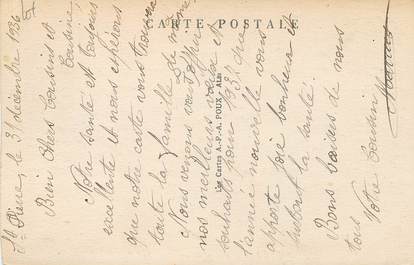 CARTE POSTALE
Les Cartes A.-P.-A. POUX - Albi
St Pierre, le 31 décembre 193
Bien chers Cousins et
Cousine,
Notre santé est toujours
excellente et nous espérons
que notre carte vous trouvera
toute la famille de même
Nous venons vous
nos meilleurs vœux et
souhaits pour 193 que
l'année nouvelle vous
apporte joie bonheur et
surtout la santé.
Bons baisers de nous
tous
Votre Cousin